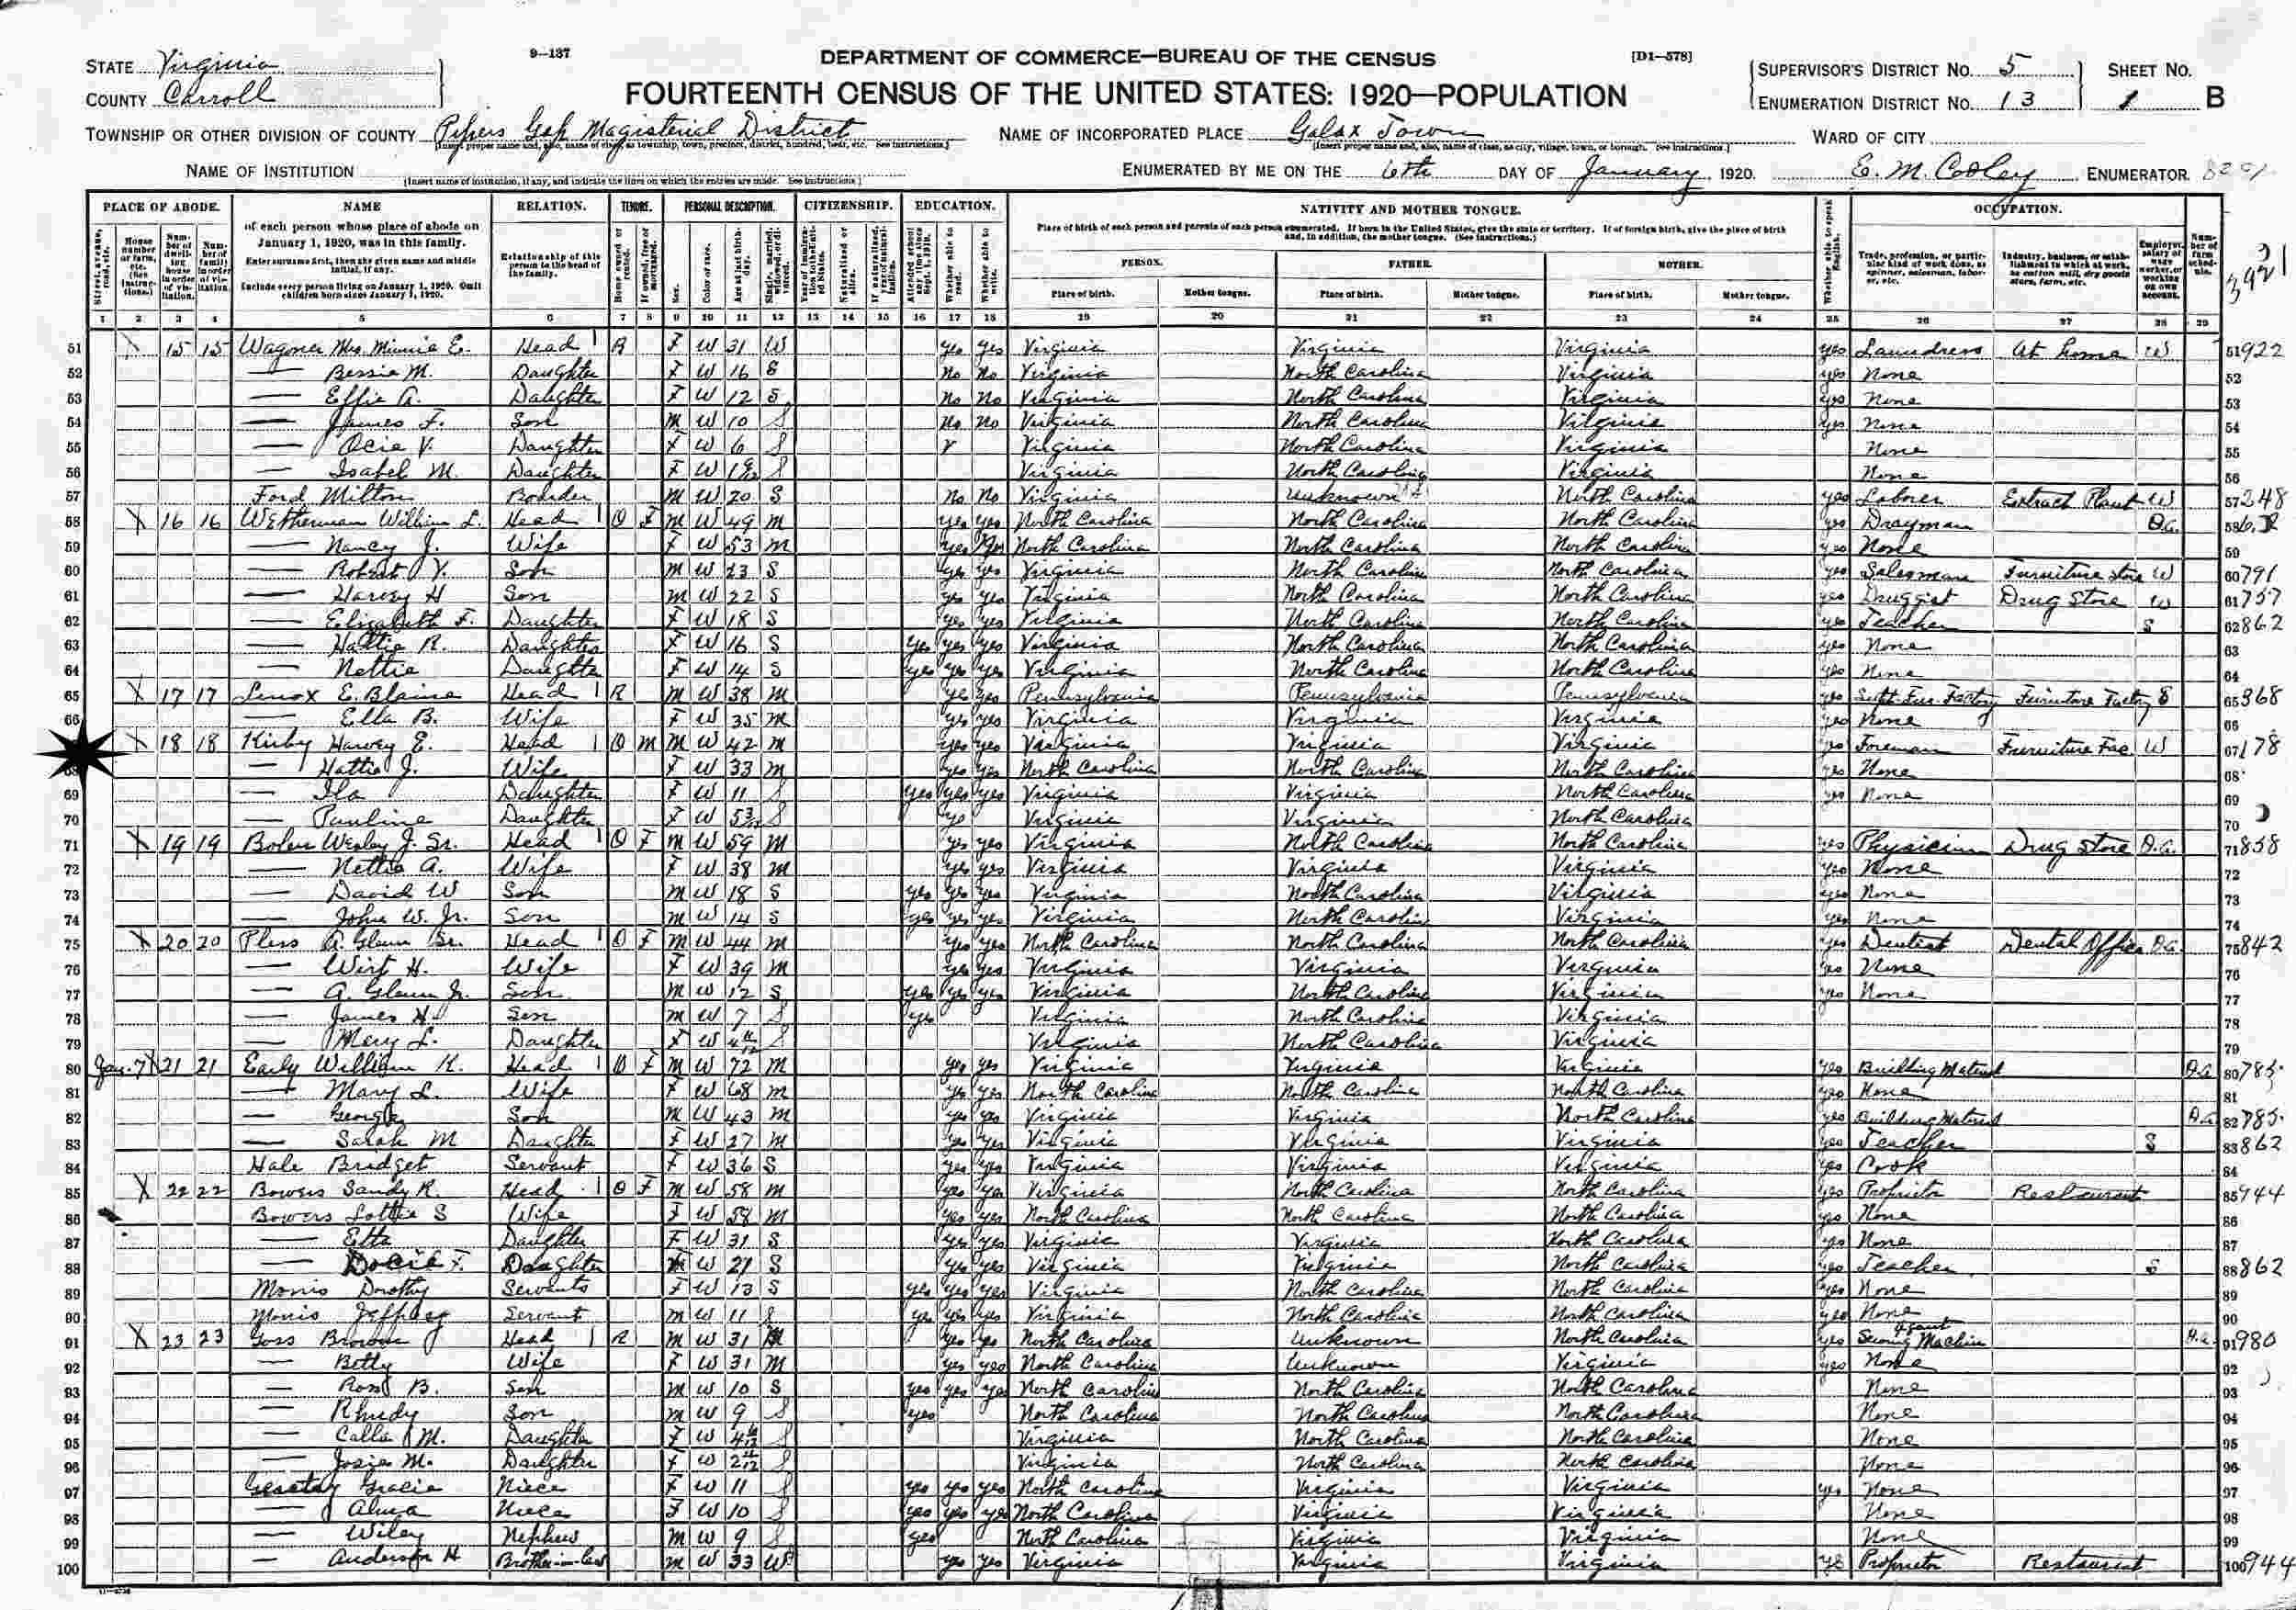 9—137
DEPARTMENT OF COMMERCE—BUREAU OF THE CENSUS
[D1—578]
STATE Virginia
COUNTY Carroll
FOURTEENTH CENSUS OF THE UNITED STATES: 1920—POPULATION
SUPERVISOR'S DISTRICT No. 5 SHEET No.
ENUMERATION DISTRICT No. 13 1 B
TOWNSHIP OR OTHER DIVISION OF COUNTY Pipers Gap Magisterial District NAME OF INCORPORATED PLACE Galax Town WARD OF CITY
NAME OF INSTITUTION ENUMERATED BY ME ON THE 6th DAY OF January, 1920. E. M. Cooley ENUMERATOR.
PLACE OF ABODE. NAME RELATION. TENURE. PERSONAL DESCRIPTION. CITIZENSHIP. EDUCATION. NATIVITY AND MOTHER TONGUE. OCCUPATION.
of each person whose place of abode on January 1, 1920, was in this family.
Enter surname first, then the given name and middle initial, if any.
Include every person living on January 1, 1920. Omit children born since January 1, 1920.
Relationship of this person to the head of the family.
Place of birth of each person and parents of each person enumerated. If born in the United States, give the state or territory. If of foreign birth, give the place of birth and, in addition, the mother tongue. (See instructions.)
PERSON. FATHER. MOTHER.
Place of birth. Mother tongue. Place of birth. Mother tongue. Place of birth. Mother tongue.
1 2 3 4 5 6 7 8 9 10 11 12 13 14 15 16 17 18 19 20 21 22 23 24 25 26 27 28 29
51 X 15 15 Wagoner Mrs. Minnie E. Head 1 R F W 31 W yes yes Virginia Virginia Virginia yes Laundress At home W 51 922
52 — Bessie M. Daughter F W 16 S no no Virginia North Carolina Virginia yes None 52
53 — Effie A. Daughter F W 12 S no no Virginia North Carolina Virginia yes None 53
54 — James F. Son M W 10 S no no Virginia North Carolina Virginia yes None 54
55 — Ocie V. Daughter F W 6 S Virginia North Carolina Virginia None 55
56 — Isabel M. Daughter F W S Virginia North Carolina Virginia None 56
57 Ford Milton Boarder M W 20 S no no Virginia Unknown North Carolina yes Laborer Extract Plant W 57 248
58 X 16 16 Wetherman William L. Head 1 O F M W 49 M yes yes North Carolina North Carolina North Carolina yes Drayman O.A. 58
59 — Nancy J. Wife F W 53 M yes yes North Carolina North Carolina North Carolina yes None 59
60 — Robert V. Son M W 23 S yes yes Virginia North Carolina North Carolina yes Salesman Furniture Store W 60 791
61 — Harvey H Son M W 22 S yes yes Virginia North Carolina North Carolina yes Druggist Drug Store W 61 757
62 — Elizabeth F. Daughter F W 18 S yes yes Virginia North Carolina North Carolina yes Teacher S 62 862
63 — Hattie R. Daughter F W 16 S yes yes yes Virginia North Carolina North Carolina yes None 63
64 — Nettie Daughter F W 14 S yes yes yes Virginia North Carolina North Carolina yes None 64
65 X 17 17 Lenox E. Blaine Head 1 R M W 38 M yes yes Pennsylvania Pennsylvania Pennsylvania yes Supt. Fur. Factory Furniture Factory S 65 368
66 — Ella B. Wife F W 35 M yes yes Virginia Virginia Virginia yes None 66
X 18 18 Kirby Harvey E. Head 1 O M M W 42 M yes yes Virginia Virginia Virginia yes Foreman Furniture Fac. W 67 178
68 — Hattie J. Wife F W 33 M yes yes North Carolina North Carolina North Carolina yes None 68
69 — Ila Daughter F W 11 S yes yes yes Virginia Virginia North Carolina yes None 69
70 — Pauline Daughter F W 5 3/12 S Virginia Virginia North Carolina 70
71 X 19 19 Bolen Wesley J. Sr. Head 1 O F M W 59 M yes yes Virginia North Carolina North Carolina yes Physician Drug Store O.A. 71 858
72 — Nettie A. Wife F W 38 M yes yes Virginia Virginia Virginia yes None 72
73 — David W Son M W 18 S yes yes yes Virginia North Carolina Virginia yes None 73
74 — John W. Jr. Son M W 14 S yes yes yes Virginia North Carolina Virginia yes None 74
75 X 20 20 Pless A. Glenn Sr. Head 1 O F M W 44 M yes yes North Carolina North Carolina North Carolina yes Dentist Dental Office O.A. 75 842
76 — Wirt H. Wife F W 39 M yes yes Virginia Virginia Virginia yes None 76
77 — A. Glenn Jr. Son M W 12 S yes yes yes Virginia North Carolina Virginia yes None 77
78 — James H. Son M W 7 S yes Virginia North Carolina Virginia 78
79 — Mery L. Daughter F W S Virginia North Carolina Virginia 79
80 Jan. 7 X 21 21 Early William K. Head 1 O F M W 72 M yes yes Virginia Virginia Virginia yes Building Material O.A. 80 785
81 — Mary L. Wife F W 68 M yes yes North Carolina North Carolina North Carolina yes None 81
82 — George Son M W 43 M yes yes Virginia Virginia North Carolina yes Building Material O.A. 82 785
83 — Sarah M Daughter F W 27 M yes yes Virginia Virginia Virginia yes Teacher S 83 862
84 Hale Bridget Servant F W 36 S yes yes Virginia Virginia Virginia yes Cook 84
85 X 22 22 Bowers Sandy R. Head 1 O F M W 58 M yes yes Virginia North Carolina North Carolina yes Proprietor Restaurant 85 944
86 Bowers Lottie S Wife F W 58 M yes yes North Carolina North Carolina North Carolina yes None 86
87 — Etta Daughter F W 31 S yes yes Virginia Virginia North Carolina yes None 87
88 — Docie F. Daughter F W 21 S yes yes Virginia Virginia North Carolina yes Teacher S 88 862
89 Morris Dorothy Servants F W 13 S yes yes yes Virginia North Carolina North Carolina yes None 89
90 Morris Jeffrey Servant M W 11 S yes yes yes Virginia North Carolina North Carolina yes None 90
91 X 23 23 Goss Brown Head 1 R M W 31 M yes yes North Carolina Unknown North Carolina yes Sewing Machine Agent O.A. 91 980
92 — Betty Wife F W 31 M yes yes North Carolina Unknown Virginia yes None 92
93 — Ross B. Son M W 10 S yes yes yes North Carolina North Carolina North Carolina None 93
94 — Rhudy Son M W 9 S yes North Carolina North Carolina North Carolina None 94
95 — Calla M. Daughter F W S Virginia North Carolina North Carolina None 95
96 — Josie M. Daughter F W S Virginia North Carolina North Carolina None 96
97 Gracie Niece F W 11 S yes yes yes North Carolina Virginia Virginia yes None 97
98 — Alma Niece F W 10 S yes yes yes North Carolina Virginia Virginia None 98
99 — Wiley Nephew M W 9 S yes North Carolina Virginia Virginia None 99
100 — Anderson H Brother-in-law M W 33 W yes yes Virginia Virginia Virginia yes Proprietor Restaurant 100 944